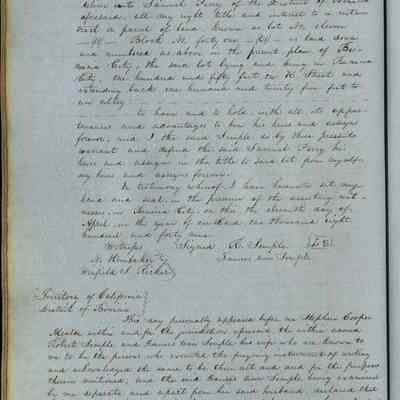 unto Samuel Perry of the District of Sonoma
aforesaid, all my right title and interest to a certain
lot or parcel of land, known as lot No. eleven
-11- Block No. forty one -41- as laid down
and numbered as above in the present plan of Be-
nicia City, the said lot lying and being in Benicia
City, one hundred and fifty feet on K. Street and
extending back one hundred and twenty five feet to
an alley.
to have and to hold, with all its appur-
tenances and advantages to him his heirs and assigns
forever, and I the said Semple do by these presents
warrant and defend the said Samuel Perry his
heirs and assigns in the title to said lot from myself
my heirs and assigns forever.
In testimony whereof I have hereunto set my
hand and seal in the presence of the assisting wit-
nesses, in Benicia City on this the eleventh day of
April in the year of our Lord one thousand eight
hundred and forty nine
Witness Signed R. Semple
N. Frances Ann Semple
Winfield S.
Territory of California
District of Sonoma
This day personally appeared before me Stephen Cooper
Alcalde within and for the jurisdiction aforesaid, the within named
Robert Semple and Frances Ann Semple his wife who are known to
me to be the persons who executed the foregoing instrument of writing
and acknowledged the same to be their act and deed for the purposes
therein mentioned, and the said Frances Ann Semple being examined
by me separate and apart from her said husband, declared that